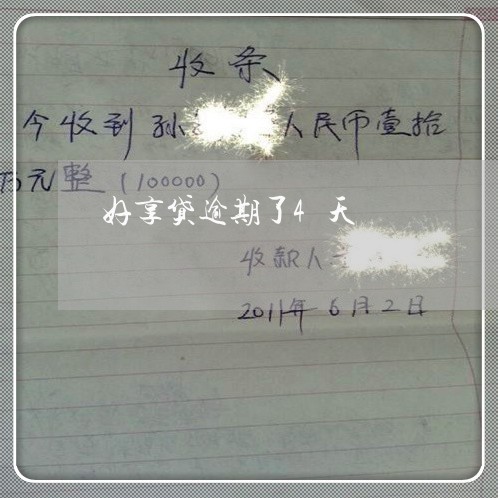 收条
今收到孙 人民币壹拾
万元整(100000)
好享贷逾期了4天
收款人
2011年6月2日